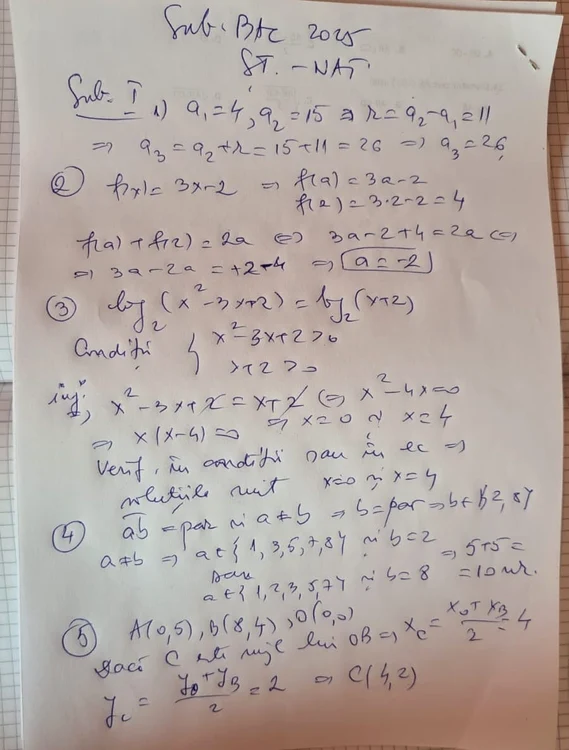 Sub. BAC 2025
ŞT. - NAT
Sub. I 1) a₁=4, a₂=15 ⇒ r=a₂-a₁=11
⇒ a₃ = a₂+r = 15+11 = 26 ⇒ a₃=26,
② f(x)=3x-2 ⇒ f(a)=3a-2
f(2)=3·2-2=4
f(a)+f(2)=2a ⇔ 3a-2+4=2a ⇔
⇒ 3a-2a=+2-4 ⇒ a=-2
③ log₂(x²-3x+2)=log₂(x+2)
Condiții { x²-3x+2>0
x+2>0
inj. ⇒ x²-3x+2=x+2 ⇔ x²-4x=0
⇒ x(x-4)=0 ⇒ x=0 și x=4
Verif. în condiții sau în ec ⇒
soluțiile sunt x=0 și x=4
④ ab=par și a≠b ⇒ b=par ⇒ b∈{2,8}
a≠b ⇒ a∈{1,3,5,7,8} și b=2
sau ⇒ 5+5=
a∈{1,2,3,5,7} și b=8 =10 nr.
⑤ A(0,5), B(8,4), O(0,0)
dacă C este mijl lui OB ⇒ x_C = (x_O+x_B)/2 = 4
y_C = (y_O+y_B)/2 = 2 ⇒ C(4,2)